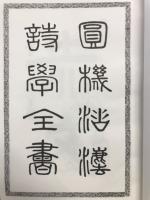 圓機活灋
詩學全書